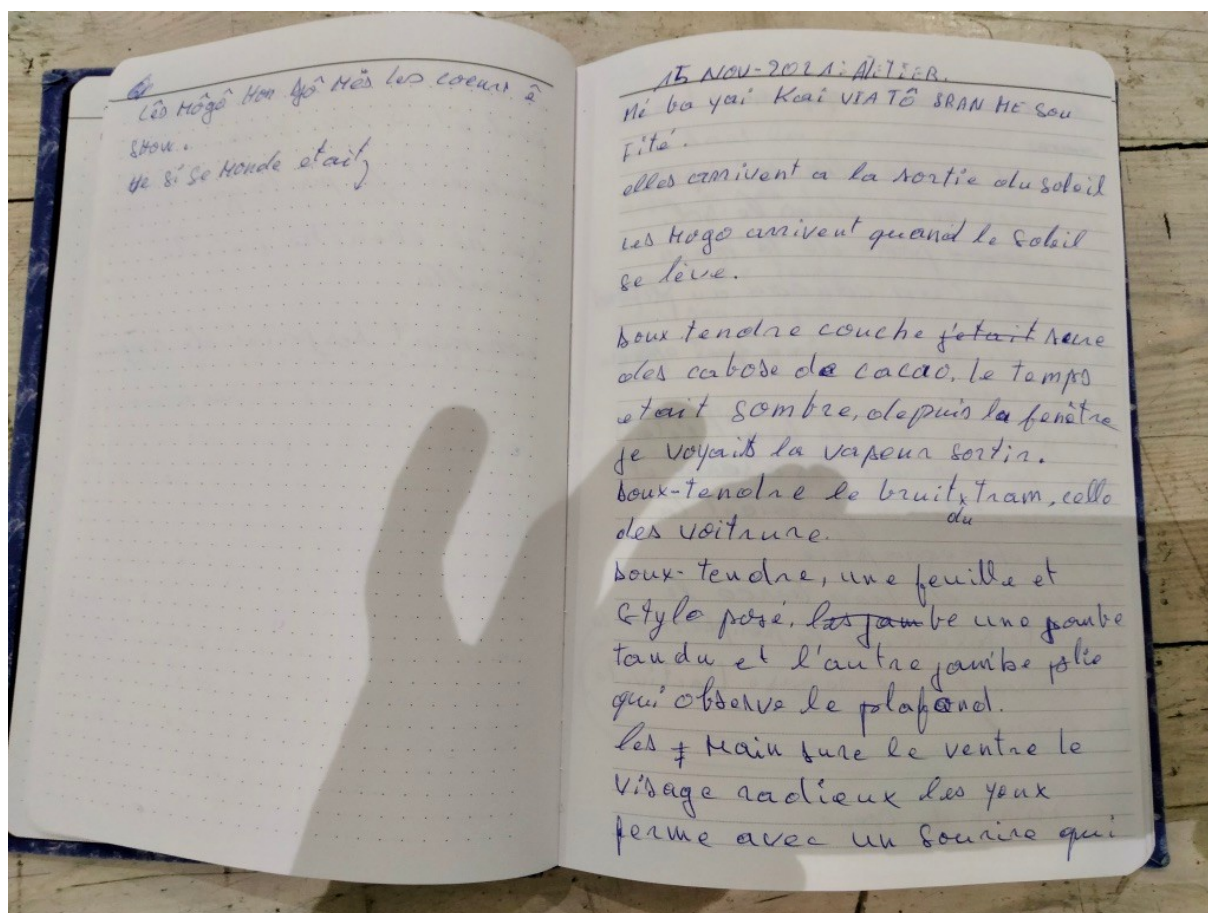 Lês Môgô Mon Gjô Mês les coeurs â
show.
He si se Monde etait,
15 NOV-2021: ATELIER.
Mi ba yai Kai VIA TÔ SRAN HE Sou
Fité.
elles arrivent a la sortie du soleil
Les Mogo arrivent quand le soleil
se lève.
Doux tendre couche j'etait sure
des cabose de cacao. le temps
etait sombre, depuis la fenêtre
je voyait la vapeur sortir.
Doux-tendre le bruit du tram, celle
des voitrure.
Doux-tendre, une feuille et
Stylo posé, les jambe une jambe
tandu et l'autre jambe plie
qui observe le plafond.
les Main sure le ventre le
visage radieux les yeux
ferme avec un sourire qui